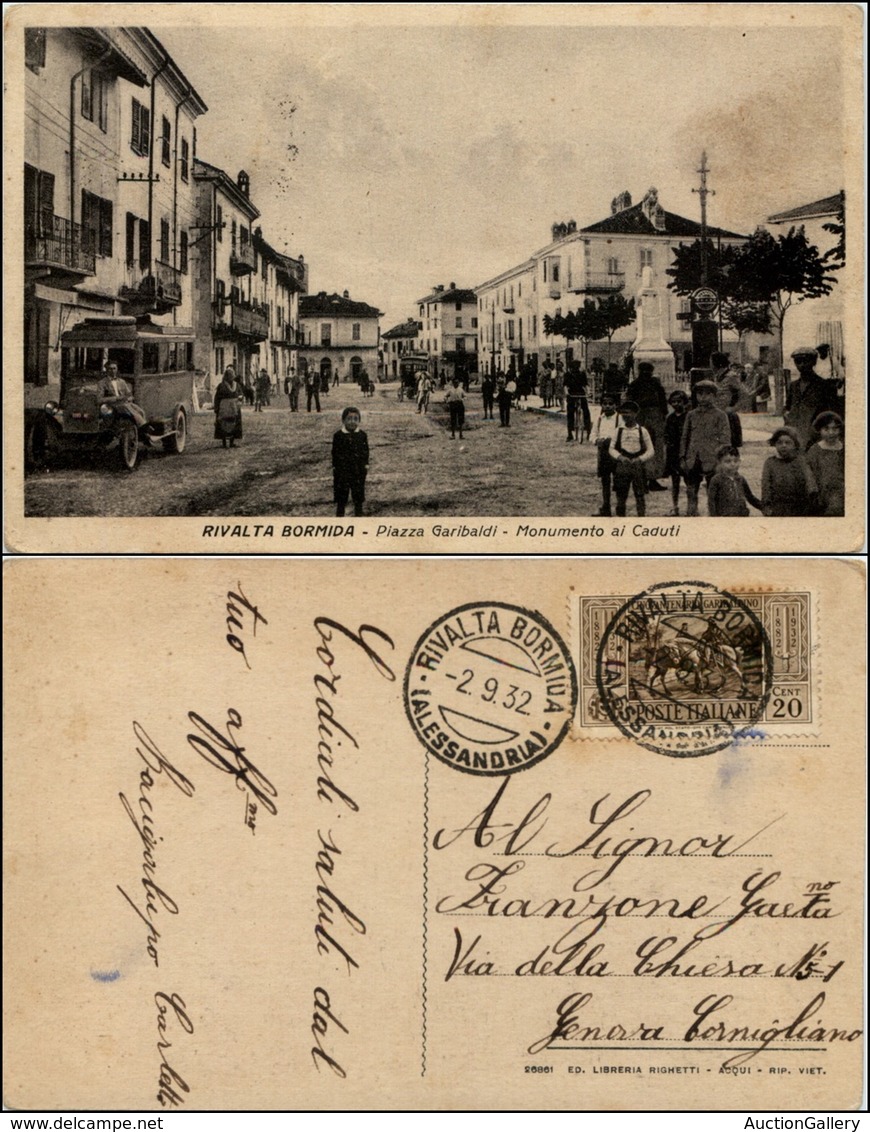 RIVALTA BORMIDA - Piazza Garibaldi - Monumento ai Caduti
Cordiali saluti dal
tuo aff.mo
Bacigalupo Carletto
RIVALTA BORMIDA
-2.9.32.
(ALESSANDRIA)
CINQUANTENARIO GARIBALDINO
1882
1932
1882
POSTE ITALIANE
CENT
20
RIVALTA BORMIDA
(ALESSANDRIA)
Al Signor
Franzone Gaeta no
Via della Chiesa N° 5-1
Genova Cornigliano
26861 ED. LIBRERIA RIGHETTI - ACQUI - RIP. VIET.
AuctionGallery